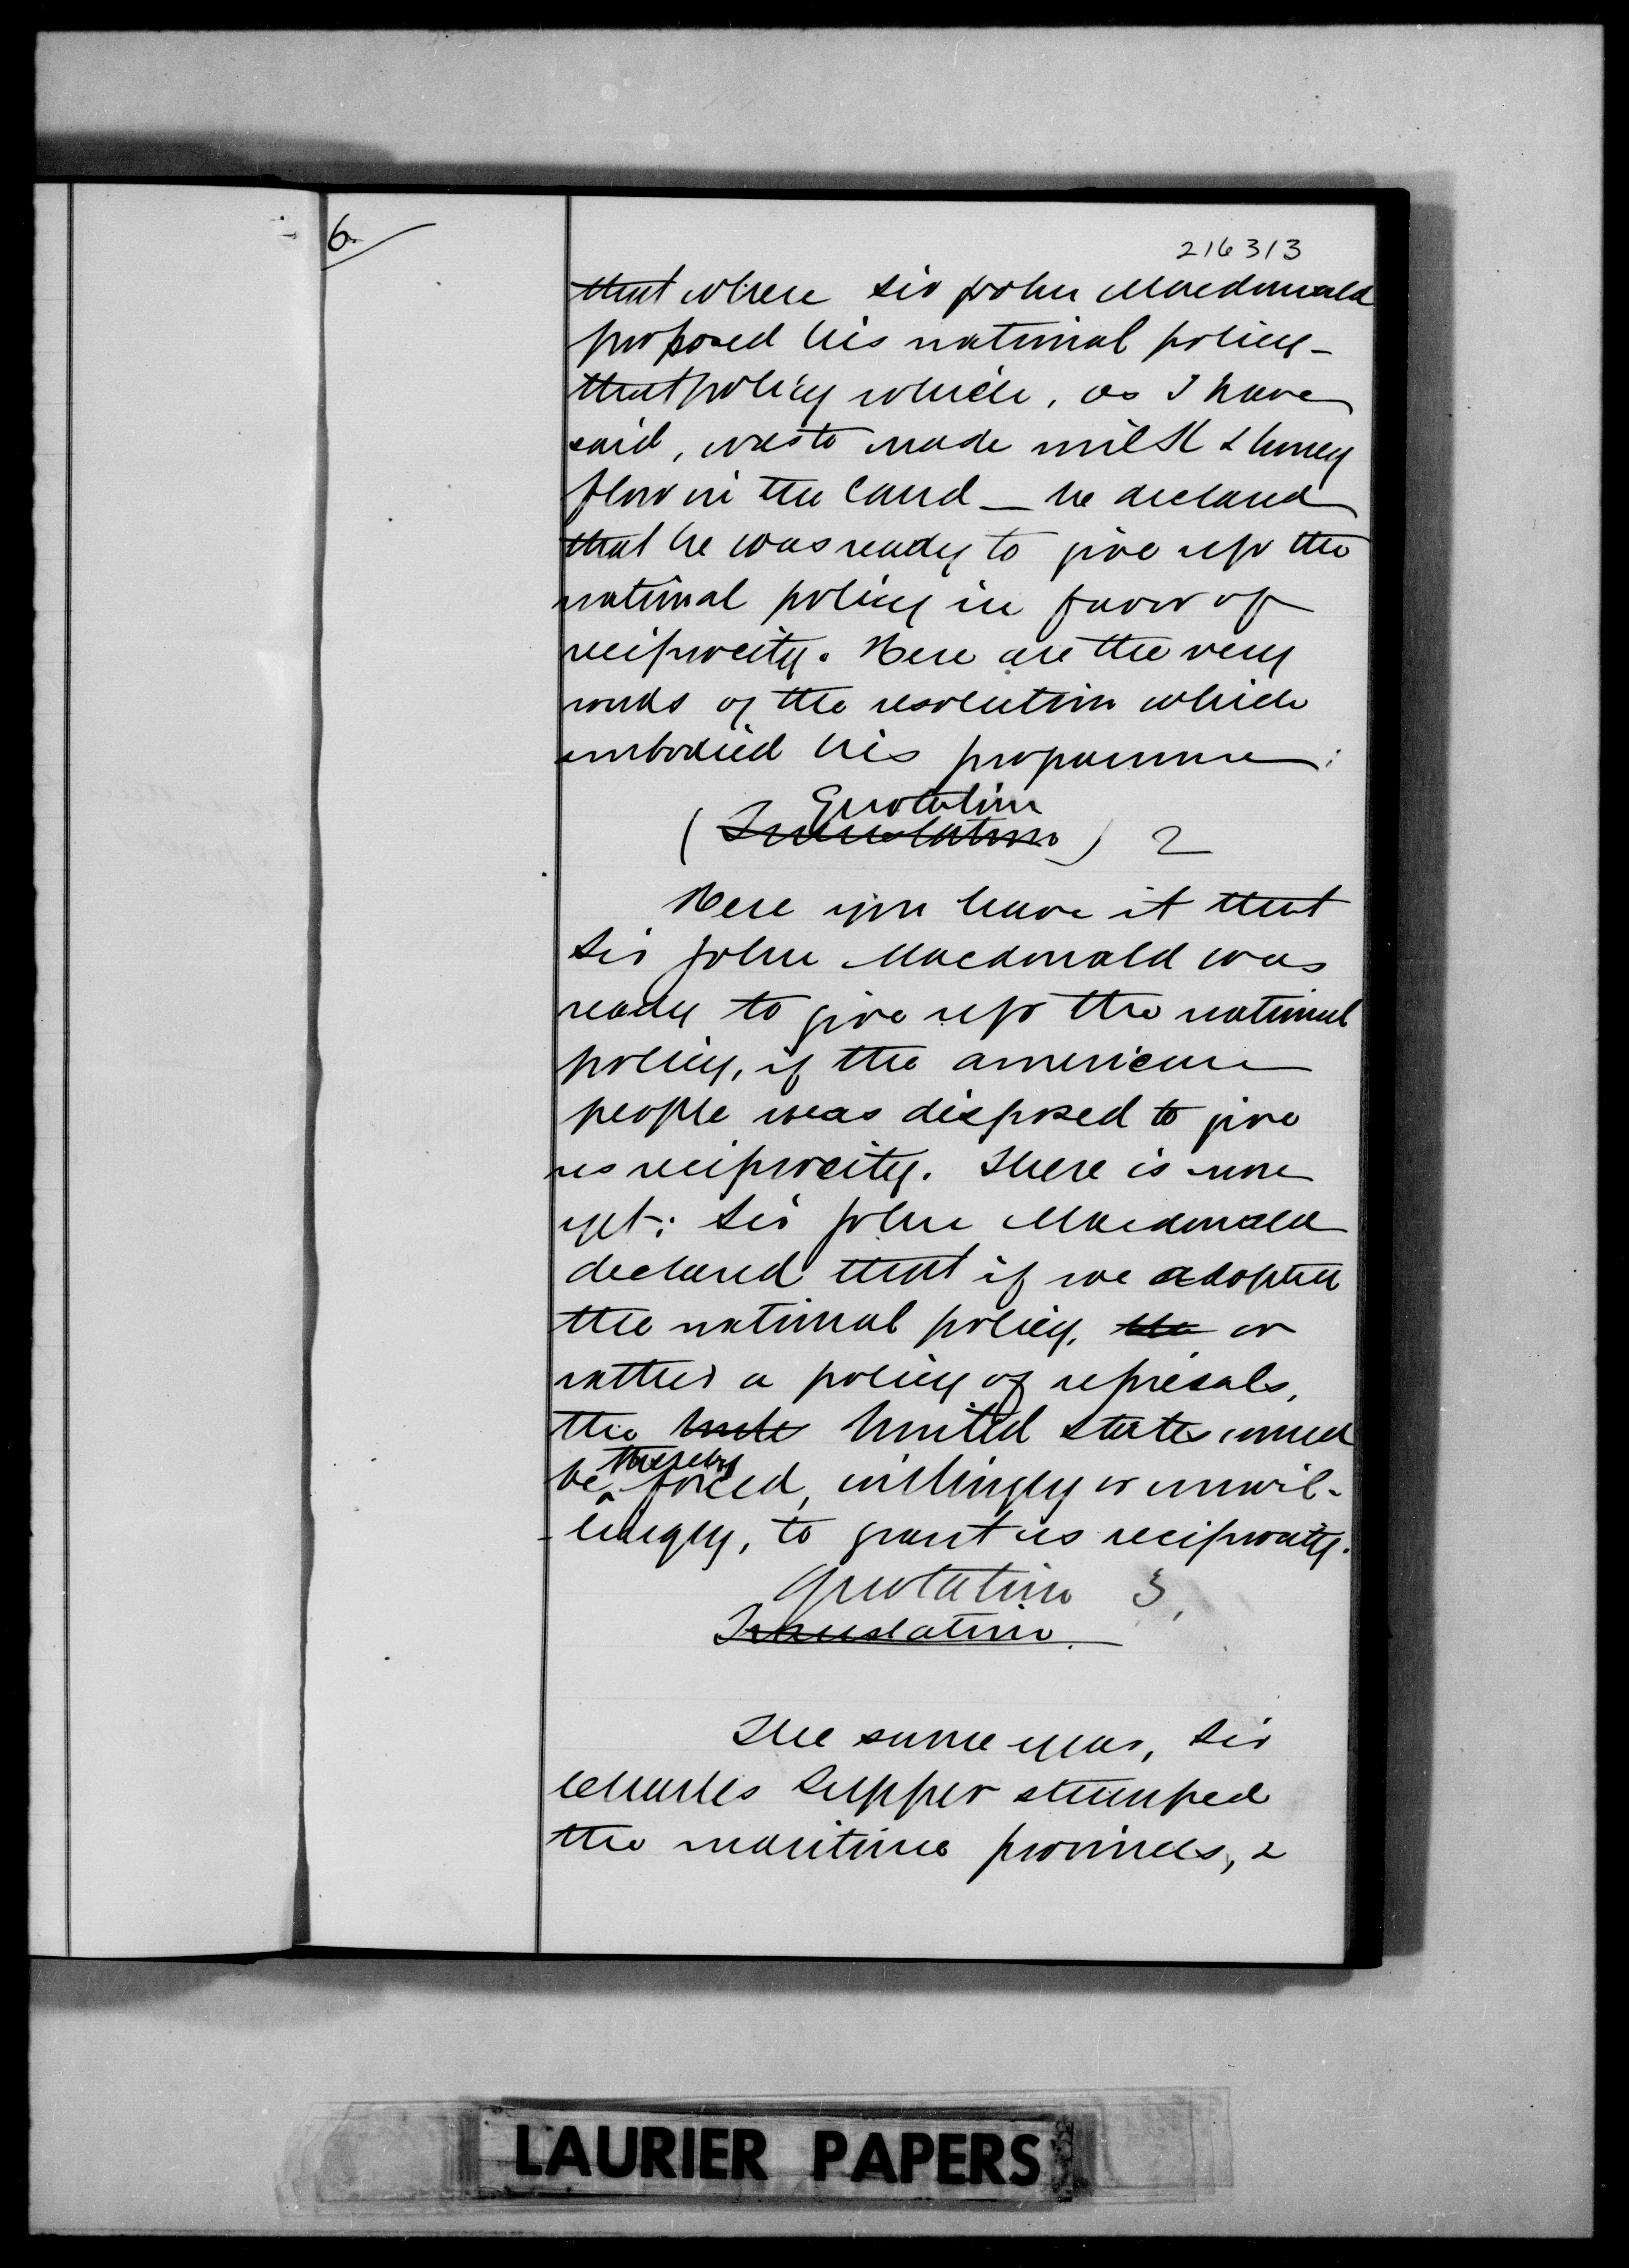 6.
216313
that where Sir John Macdonald
proposed his national policy -
that policy which, as I have
said, was to made milk & honey
flow in the land - he declared
that he was ready to give up the
national policy in favor of
reciprocity. Here are the very
words of the resolution which
embodied his programme:
Quotation
(Translation) 2
Here you have it that
Sir John Macdonald was
ready to give up the national
policy, if the american
people was disposed to give
us reciprocity. There is more
yet: Sir John Macdonald
declared that if we adopted
the national policy, the or
rather a policy of reprisals,
the United States would
thereby
be forced, willingly or unwil-
-lingly, to grant us reciprocity.
Quotation 3.
Translation.
The same year, Sir
Charles Tupper stumped
the maritime provinces, &
LAURIER PAPERS